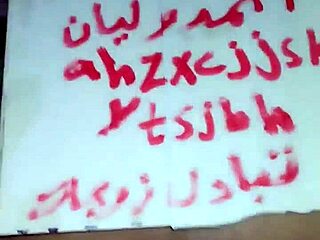 احمد وليان
ahzxcjjsh
ytsjhh
تبادل زوجات